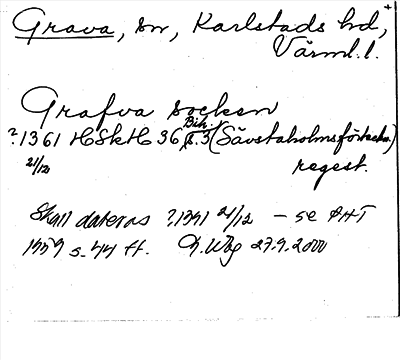 Grava, sn, Karlstads hd,
Värml. l.
Grafva socken
?1361 HSkH 36 Bih. s. 3 (Sävstaholmsförteckn.)
21/12 regest.
Skall dateras ?1351 21/12 – se PHT
1959 s. 44 ff. 27.9.2000